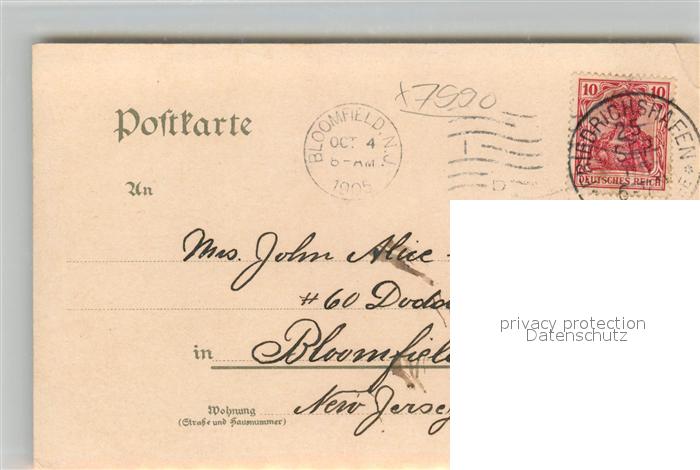 Postkarte
x7990
BLOOMFIELD, N.J.
OCT 4
6-AM
1905
10 10
DEUTSCHES REICH
FRIEDRICHSHAFEN
25
An
Mrs. John Alice
#60 Dodd
in Bloomfiel
New Jersey
Wohnung
(Straße und Hausnummer)
privacy protection
Datenschutz